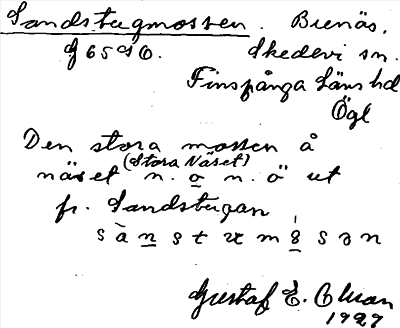 Sandstugmossen. Brenäs,
G 65 SO. Skedevi sn.
Finspånga läns hd
Ögl
Den stora mossen å
(Stora Näset)
näset n. o n. ö ut
fr. Sandstugan
Gustaf E. Olson
1927